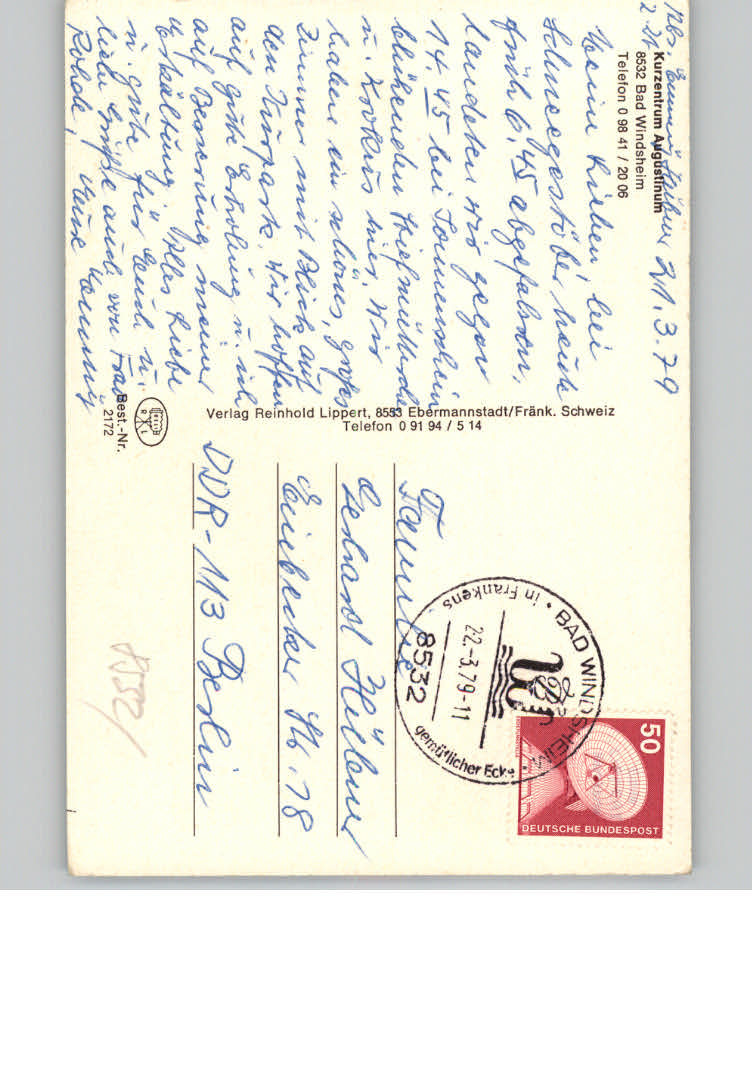 Abs. Emmi Hübner 21.3.79
Kurzentrum Augustinum
8532 Bad Windsheim
Telefon 0 98 41 / 20 06
Meine Lieben, bei
Schneegestöber heute
früh 6,45 abgefahren,
landeten wir gegen
14.45 bei Sonnenschein
blühenden Stiefmütterchen
u. Krokus hier. Wir
haben ein schönes, großes
Zimmer mit Blick auf
den Kurpark. Wir hoffen
auf gute Erholung u. ich
auf Besserung meiner
Erkältung. Alles Liebe
u. gute für Euch u.
liebe Grüße auch von Frau
Rohde, Eure
Verlag Reinhold Lippert, 8553 Ebermannstadt/Fränk. Schweiz
Telefon 0 91 94 / 5 14
R L
Best.-Nr.
2172
Familie
Gerhard Hübner
Einbecker Str. 78
DDR-113 Berlin
BAD WINDSHEIM
in Frankens
gemütlicher Ecke
22.-3.79-11
8532
50
DEUTSCHE BUNDESPOST
8532